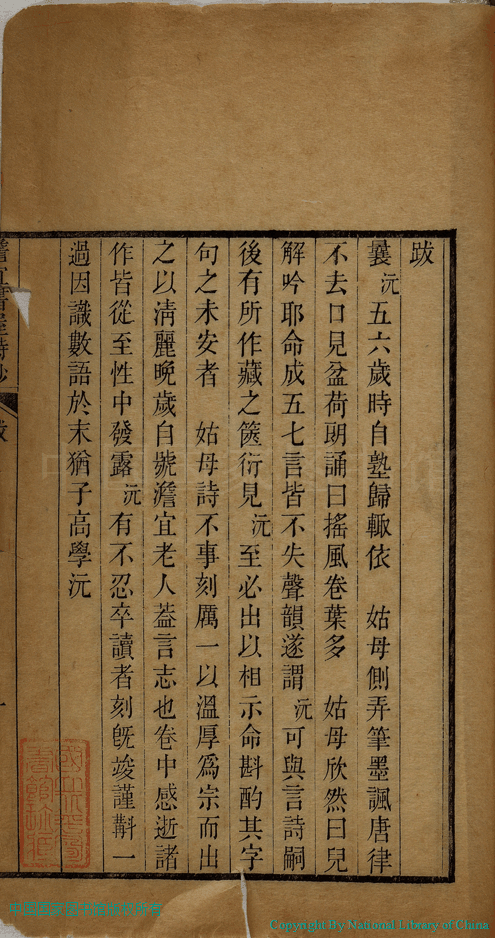 跋
曩沅五六歲時自塾歸輙依　姑母側弄筆墨諷唐律
不去口見盆荷朗誦曰搖風卷葉多　姑母欣然曰兒
解吟耶命成五七言皆不失聲韻遂謂沅可與言詩嗣
後有所作藏之篋衍見沅至必出以相示命斟酌其字
句之未安者　姑母詩不事刻厲一以溫厚爲宗而出
之以清麗晚歲自號澹宜老人葢言志也卷中感逝諸
作皆從至性中發露沅有不忍卒讀者刻旣竣謹斠一
過因識數語於末猶子高學沅
跋
一
Copyright By National Library of China